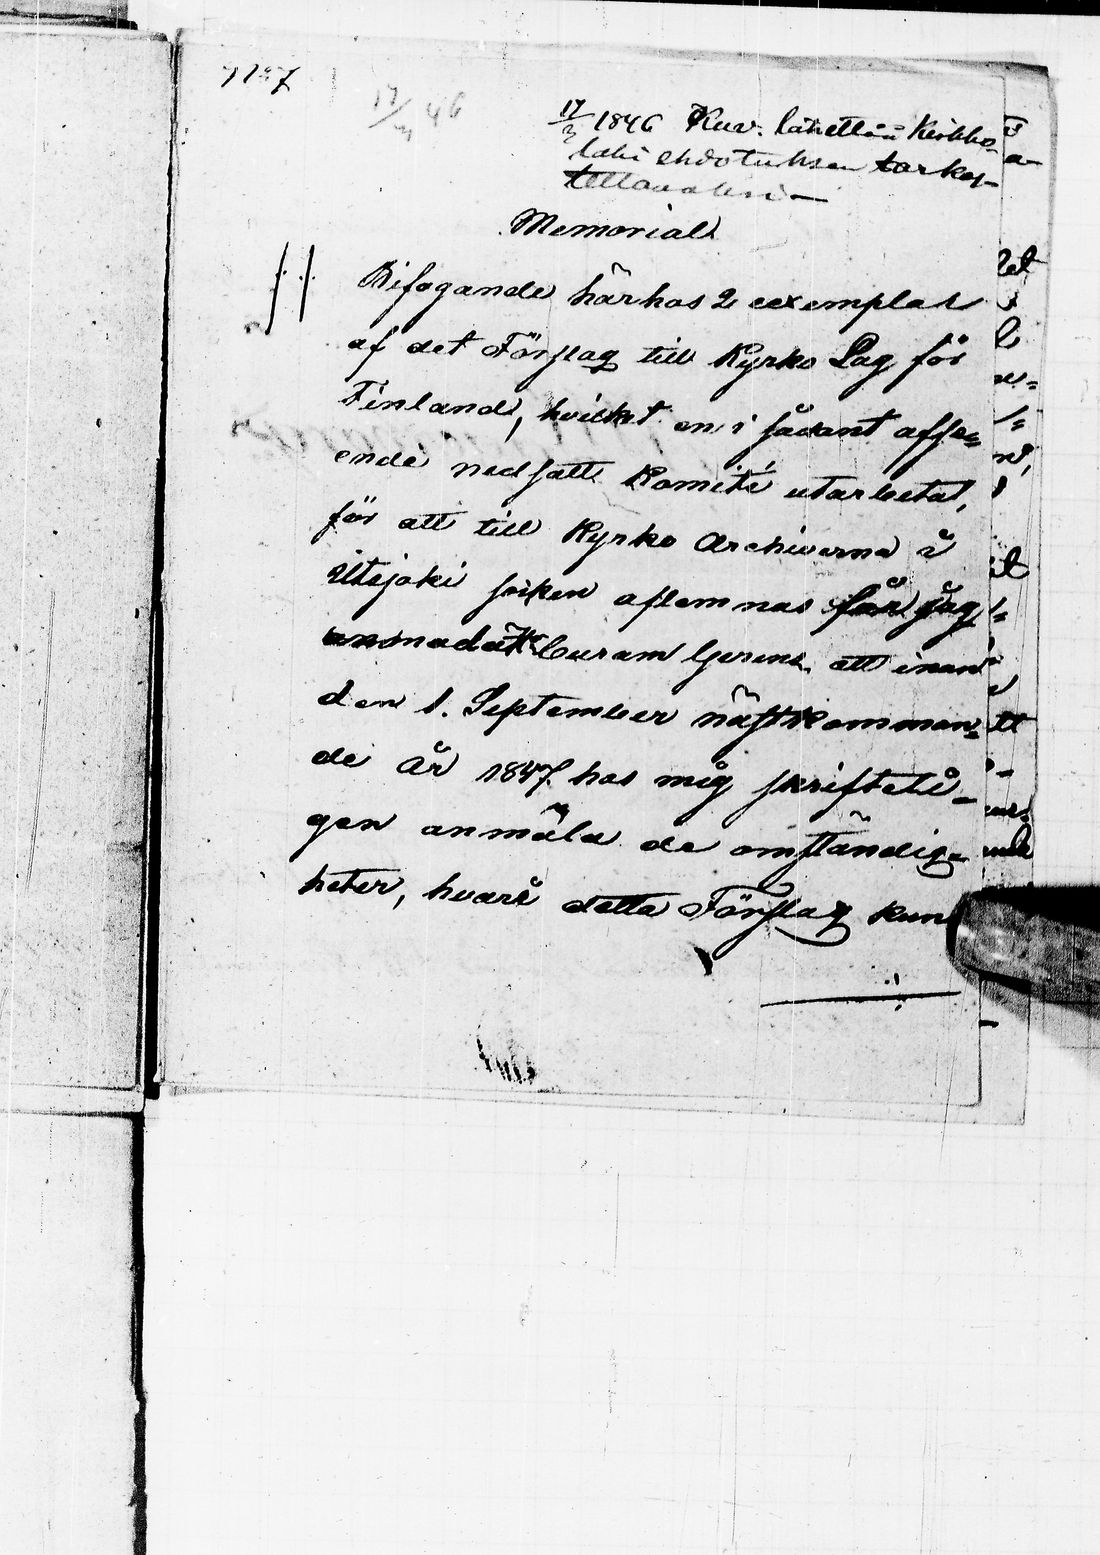 17/3 46
17/3 1846 Kuv. lähettää Kirkko-
laki ehdotuksen tarkas-
tettavaksi —
Memorial
Bifogande härhos 2 exemplar
af det Förslag till Kyrko Lag för
Finland, hvilket en i sådant afse=
ende nedsatt Komité utarbetat,
för att till Kyrko Archiverna i
Utsjoki socken aflemnas får jag
anmoda Curam Gerens att innan
den 1. September nästkomman=
de år 1847 hos mig skrifteli-
gen anmäla de omständig=
heter, hvari detta Förslag kun